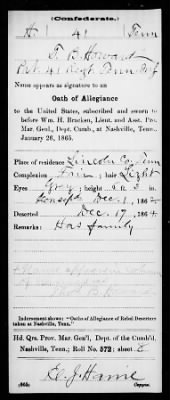 (Confederate.)
H 41 Tenn
T. B. Howard
Pvt 41 Regt Tenn Inf
Name appears as signature to an
Oath of Allegiance
to the United States, subscribed and sworn to
before Wm. H. Bracken, Lieut. and Asst. Pro.
Mar. Genl., Dept. Cumb., at Nashville, Tenn.,
January 26, 1865.
Place of residence Lincoln Co. Tenn
Complexion ; hair Light
Eyes Grey; height 6 ft. 2 in.
Conscript Dec. 1, 1862
Deserted Dec. 17, 1864
Remarks: Has family
Name
Indorsement shows: "Oaths of Allegiance of Rebel Deserters
taken at Nashville, Tenn."
Hd. Qrs. Prov. Mar. Genl., Dept. of the Cumb'd,
Nashville, Tenn.; Roll No. 572; sheet 8
Copyist.